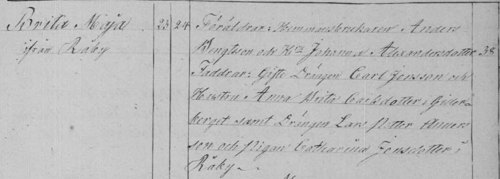 Brita Maja 23 24 Föräldrar: Hemmansbrukaren Anders
ifrån Råby Bengtson och Hu Johanna Alexandersdotter 38
Faddrar: Gifte Drängen Carl Jonsson och
Hustru Anna Brita Carlsdotter i
berget samt Drängen Lars Petter
son och Pigan Catharina Jonsdotter i
Råby